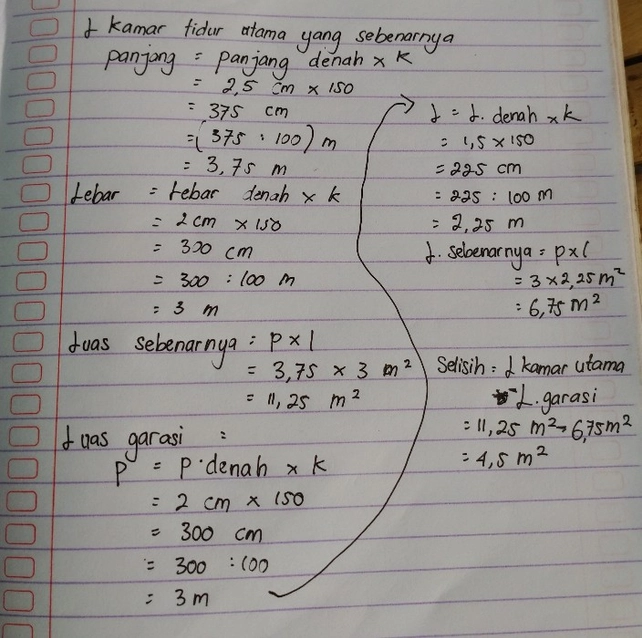 L kamar tidur utama yang sebenarnya
panjang = panjang denah x k
= 2,5 cm x 150
= 375 cm
= (375 : 100) m
= 3,75 m
Lebar = Lebar denah x k
= 2 cm x 150
= 300 cm
= 300 : 100 m
= 3 m
Luas sebenarnya = p x l
= 3,75 x 3 m²
= 11,25 m²
Luas garasi =
P = P. denah x k
= 2 cm x 150
= 300 cm
= 300 : 100
= 3 m
L = L. denah x k
= 1,5 x 150
= 225 cm
= 225 : 100 m
= 2,25 m
L. sebenarnya = p x l
= 3 x 2,25 m²
= 6,75 m²
Selisih = L kamar utama
- L. garasi
= 11,25 m² - 6,75 m²
= 4,5 m²